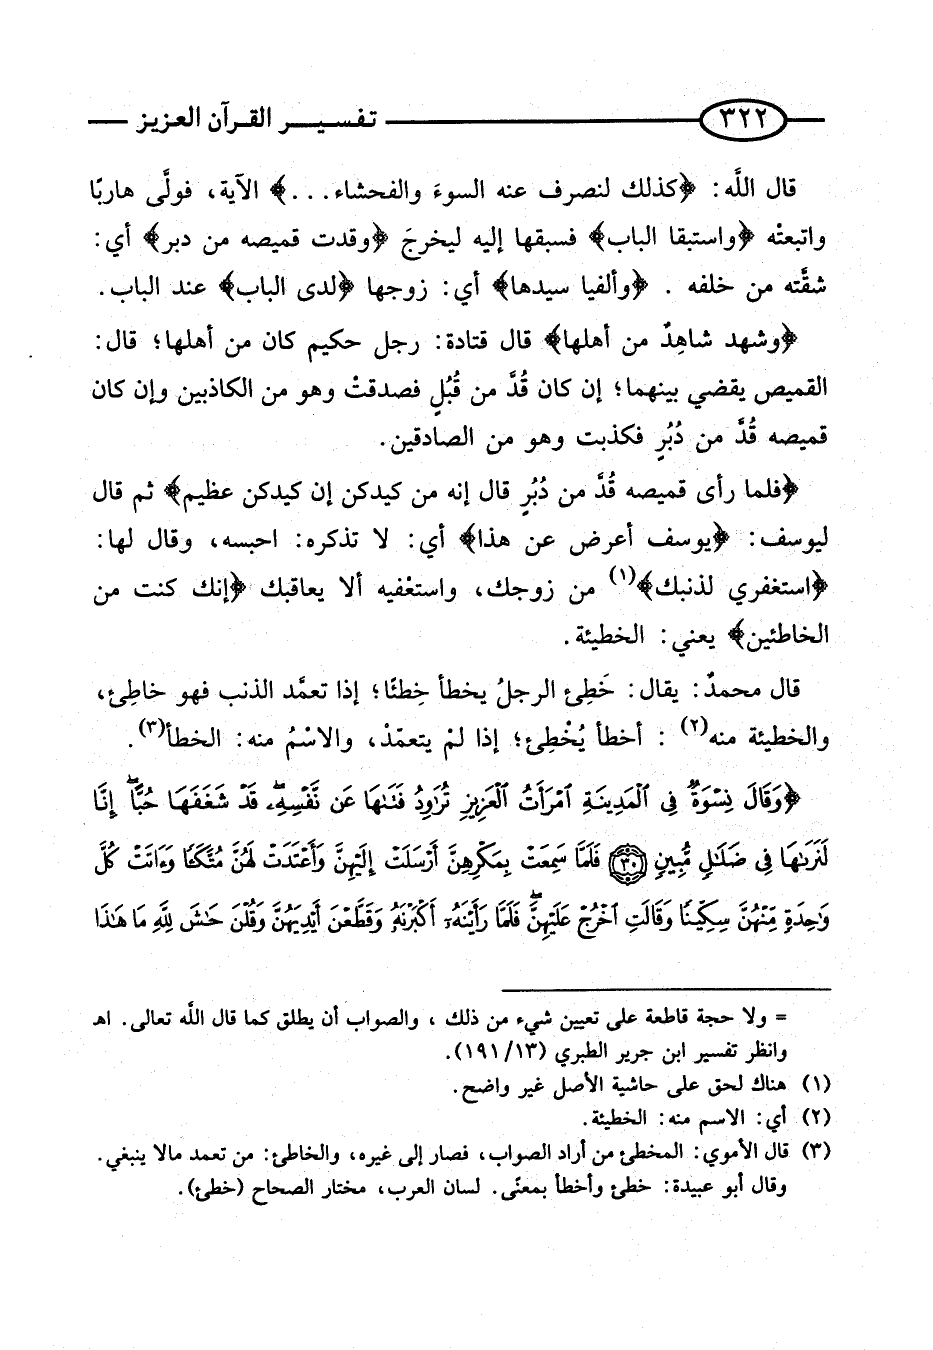 ٣٢٢ تفسير القرآن العزيز
قال اللَّه: ﴿كذلك لنصرف عنه السوءَ والفحشاء...﴾ الآية، فولَّى هاربًا
واتبعتْه ﴿واستبقا الباب﴾ فسبقها إليه ليخرجَ ﴿وقدت قميصه من دبر﴾ أي:
شقَّته من خلفه . ﴿وألفيا سيدها﴾ أي: زوجها ﴿لدى الباب﴾ عند الباب.
﴿وشهد شاهِدٌ من أهلها﴾ قال قتادة: رجل حكيم كان من أهلها؛ قال:
القميص يقضي بينهما؛ إن كان قُدَّ من قُبُلٍ فصدقتْ وهو من الكاذبين وإن كان
قميصه قُدَّ من دُبُرٍ فكذبت وهو من الصادقين.
﴿فلما رأى قميصه قُدَّ من دُبُرٍ قال إنه من كيدكن إن كيدكن عظيم﴾ ثم قال
ليوسف: ﴿يوسف أعرض عن هذا﴾ أي: لا تذكره: احبسه، وقال لها:
﴿استغفري لذنبك﴾(١) من زوجك، واستعْفيه ألا يعاقبك ﴿إنك كنت من
الخاطئين﴾ يعني: الخطيئة.
قال محمدٌ: يقال: خَطِئ الرجلُ يخطأ خِطئًا؛ إذا تعمَّد الذنب فهو خاطِئ،
والخطيئة منه(٢) : أخطأ يُخْطِئ؛ إذا لمْ يتعمّدْ، والاسْمُ منه: الخطأ(٣).
﴿وَقَالَ نِسْوَةٌ فِي ٱلْمَدِينَةِ ٱمْرَأَتُ ٱلْعَزِيزِ تُرَٰوِدُ فَتَىٰهَا عَن نَّفْسِهِۦۖ قَدْ شَغَفَهَا حُبًّاۖ إِنَّا
لَنَرَىٰهَا فِي ضَلَٰلٍ مُّبِينٍ ﴿٣٠﴾ فَلَمَّا سَمِعَتْ بِمَكْرِهِنَّ أَرْسَلَتْ إِلَيْهِنَّ وَأَعْتَدَتْ لَهُنَّ مُتَّكَـًٔا وَءَاتَتْ كُلَّ
وَٰحِدَةٍ مِّنْهُنَّ سِكِّينًا وَقَالَتِ ٱخْرُجْ عَلَيْهِنَّۖ فَلَمَّا رَأَيْنَهُۥٓ أَكْبَرْنَهُۥ وَقَطَّعْنَ أَيْدِيَهُنَّ وَقُلْنَ حَٰشَ لِلَّهِ مَا هَٰذَا
= ولا حجة قاطعة على تعيين شيء من ذلك ، والصواب أن يطلق كما قال اللَّه تعالى. اهـ
وانظر تفسير ابن جرير الطبري (١٣/ ١٩١).
(١) هناك لحق على حاشية الأصل غير واضح.
(٢) أي: الاسم منه: الخطيئة.
(٣) قال الأموي: المخطئ من أراد الصواب، فصار إلى غيره، والخاطئ: من تعمد مالا ينبغي.
وقال أبو عبيدة: خطئ وأخطأ بمعنًى. لسان العرب، مختار الصحاح (خطئ).